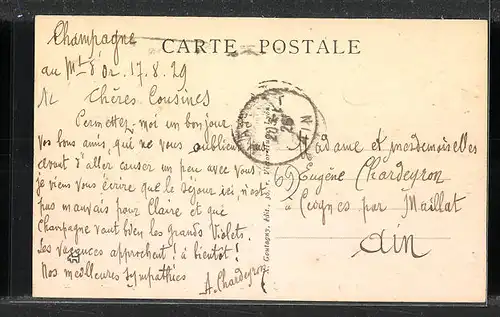 CARTE POSTALE
Champagne
au Mt d'Or 17.8.29
Chères Cousines
Permettez-moi un bonjour
Vos bons amis, qui ne vous oublient pas,
avant d'aller causer un peu avec vous
je viens vous écrire que le séjour ici, n'est
pas mauvais pour Claire et que
Champagne vaut bien les Grands Violet.
Les vacances approchent! à bientôt!
Nos meilleures sympathies
A. Chardeyron
Madame et mesdemoiselles
Eugène Chardeyron
par Maillat
Ain